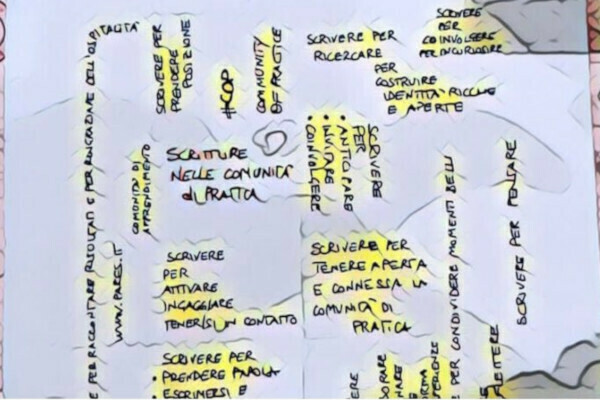 SCRIVERE
PER
COINVOLGERE
PER INCURIOSIRE
SCRIVERE PER
RICERCARE
PER
COSTRUIRE
IDENTITÀ RICCHE
E APERTE
SCRIVERE PER
PRENDERE
POSIZIONE
#COP
COMMUNITY
OF PRACTICE
E PER RACCONTARE RISULTATI E PER DELL'OSPITALITÀ
WWW.PARES.IT
COMUNITÀ DI
APPRENDIMENTO
SCRITTURE
NELLE COMUNITÀ
di PRATICA
SCRIVERE
PER
• ANTICIPARE
• INVITARE
• COINVOLGERE
SCRIVERE
PER
ATTIVARE
INGAGGIARE
TENERSI IN CONTATTO
SCRIVERE PER
TENERE APERTA
E CONNESSA LA
COMUNITÀ DI
PRATICA
E PER CONDIVIDERE MOMENTI BELLI
SCRIVERE PER PENSARE
SCRIVERE PER
• PRENDERE PAROLA
• ESPRIMERSI E